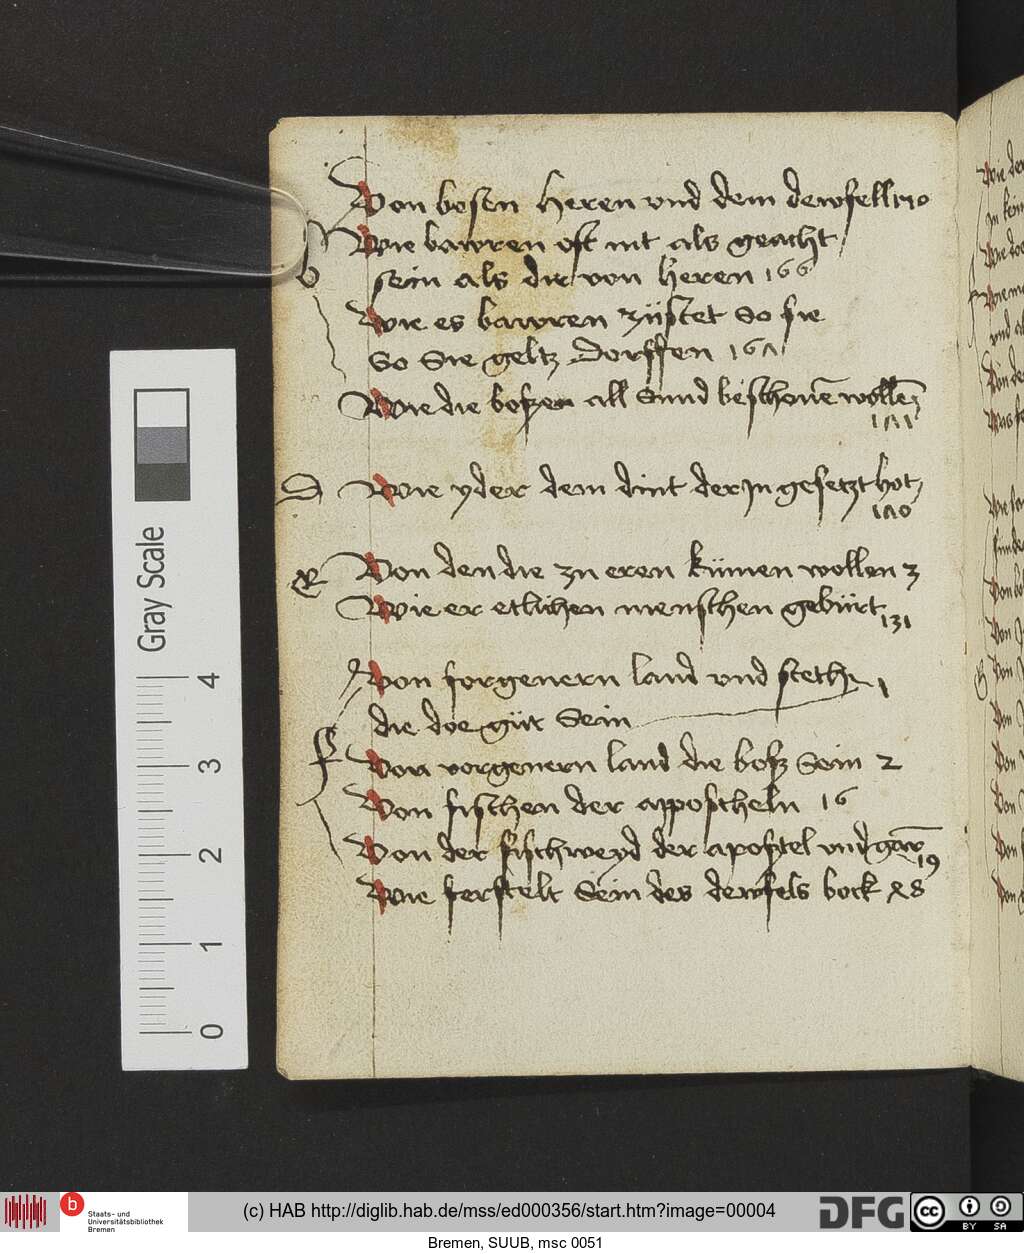 Von bosen heren vnd dem dewfell 170
Wie bawren oft nit als geacht
b
sein als die von heren 166
Wie es bawren zustet So sie
So Sie geltz Dorffen 167
Wie die boßen all Sund beschonen wollen
171
D Wie yder dem dint der In gesetzt hot
170
E Von den die zu eren kumen wollen 3
Wie er etlichen menschen geburt 131
Von forgenern land vnd steth 1
die doe gut Sein
F Von vorgenern land die boß Sein 2
Von fischen der apposteln 16
Von der fischweyd der apostel vnd
19
Wie ferstelt Sein des dewfels bock
Gray Scale
4
3
2
1
0
b
Staats- und
Universitätsbibliothek
Bremen
(c) HAB http://diglib.hab.de/mss/ed000356/start.htm?image=00004
DFG
cc
BY SA
Bremen, SUUB, msc 0051